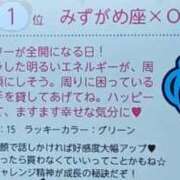 1位 みずがめ座×O
ーが全開になる日!
した明るいエネルギーが、
ります。周りに困っている
し伸べてあげてね。ハッピー
て、ますます幸せな気分に♥
:15 ラッキーカラー:グリーン
顔で話しかければ好感度大幅アップ♥
ったら買わなくていいってことかもね☆
チャレンジ精神が成長の秘訣だぜ!